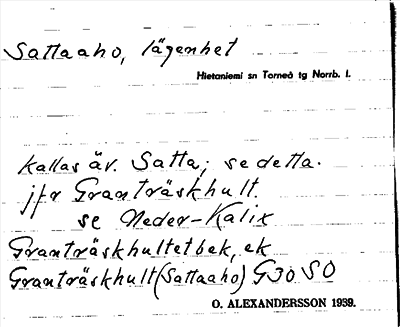 Sattaaho, lägenhet
Hietaniemi sn Torneå tg Norrb. l.
Kallas äv. Satta; se detta.
jfr Granträskhult
se Neder-Kalix
Granträskhultetbek, ek
Granträskhult (Sattaaho) G30 SO
O. ALEXANDERSSON 1939.